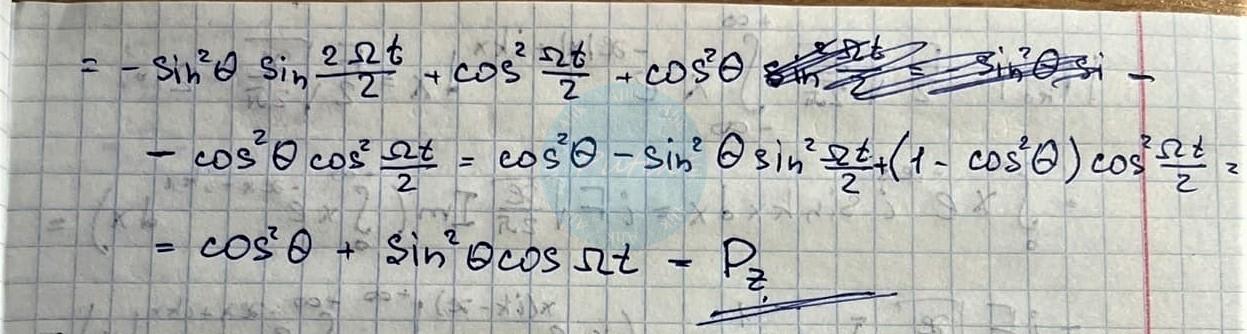 = - sin²θ sin 2Ωt/2 + cos² Ωt/2 + cos²θ -
- cos²θ cos² Ωt/2 = cos²θ - sin²θ sin² Ωt/2 + (1 - cos²θ) cos² Ωt/2 =
= cos²θ + sin²θ cos Ωt - P_z